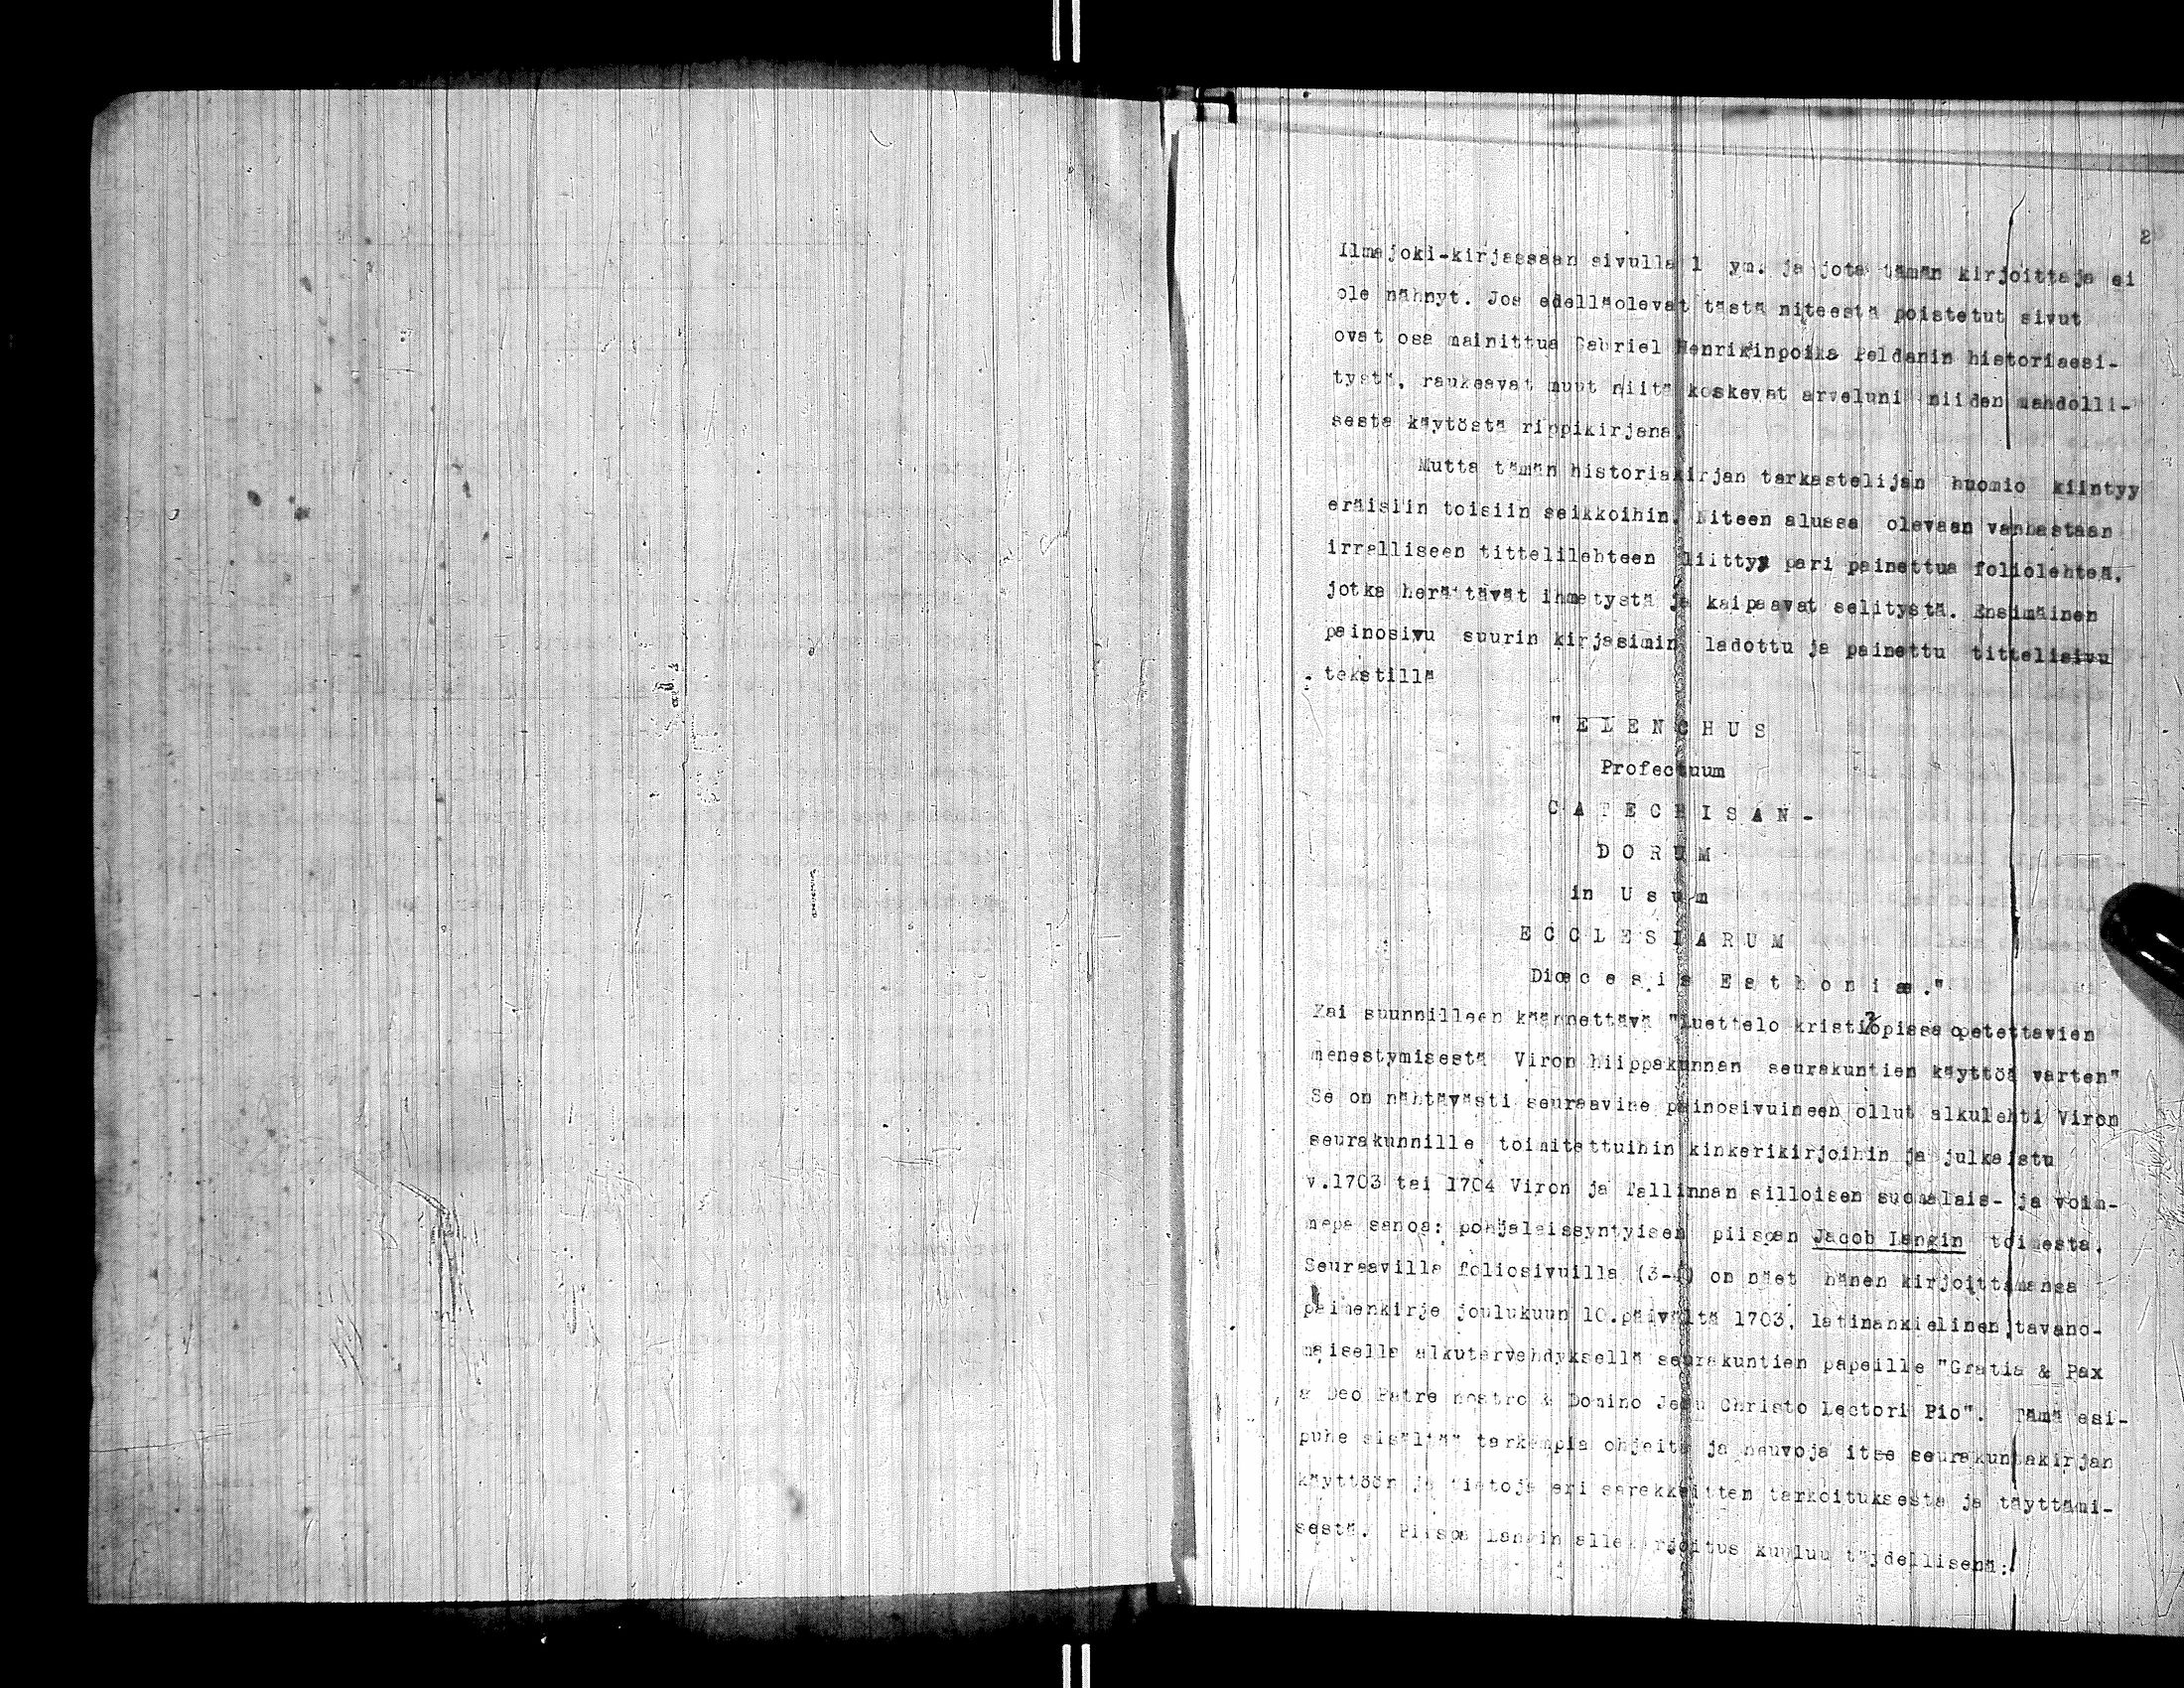 2
Ilmajoki-kirjassaan sivulla 1 ym. ja jota tämän kirjoittaja ei
ole nähnyt. Jos edelläolevat tästä niteestä poistetut sivut
ovat osa mainittua Gabriel Henrikinpoika Peldanin historiaesi-
tystä, raukeavat muut niitä koskevat arveluni niiden mahdolli-
sesta käytöstä rippikirjana.
Mutta tämän historiakirjan tarkastelijan huomio kiintyy
eräisiin toisiin seikkoihin. Niteen alussa olevaan vanhastaan
irralliseen tittelilehteen liittyy pari painettua foliolehteä,
jotka herättävät ihmetystä ja kaipaavat selitystä. Ensimäinen
painosivu suurin kirjasimin ladottu ja painettu tittelisivu
tekstillä
"E L E N C H U S
Profectuum
C A T E C H I S A N -
D O R U M
in U s u m
E C C L E S I A R U M
Diœ c e s i s E s t h o n i æ."
Kai suunnilleen käännettävä "Luettelo kristinopissa opetettavien
menestymisestä Viron hiippakunnan seurakuntien käyttöä varten"
Se on nähtävästi seuraavine painosivuineen ollut alkulehti Viron
seurakunnille toimitettuihin kinkerikirjoihin ja julkaistu
v.1703 tai 1704 Viron ja Tallinnan silloisen suomalais- ja voim-
mepa sanoa: pohjalaissyntyisen piispan Jacob Langin toimesta.
Seuraavilla foliosivuilla on näet hänen kirjoittamansa
paimenkirje joulukuun 10.päivältä 1703, latinankielinen, tavano-
maisella alkutervehdyksellä seurakuntien papeille "Gratia & Pax
a Deo Patre nostro & Domino Jesu Christo Lectori Pio". Tämä esi-
puhe sisältää tarkempia ohjeita ja neuvoja itse seurakuntakirjan
käyttöön ja tietoja eri sarekkeitten tarkoituksesta ja täyttämi-
sestä. Piispa Langin allekirjoitus kuuluu täydellisenä: